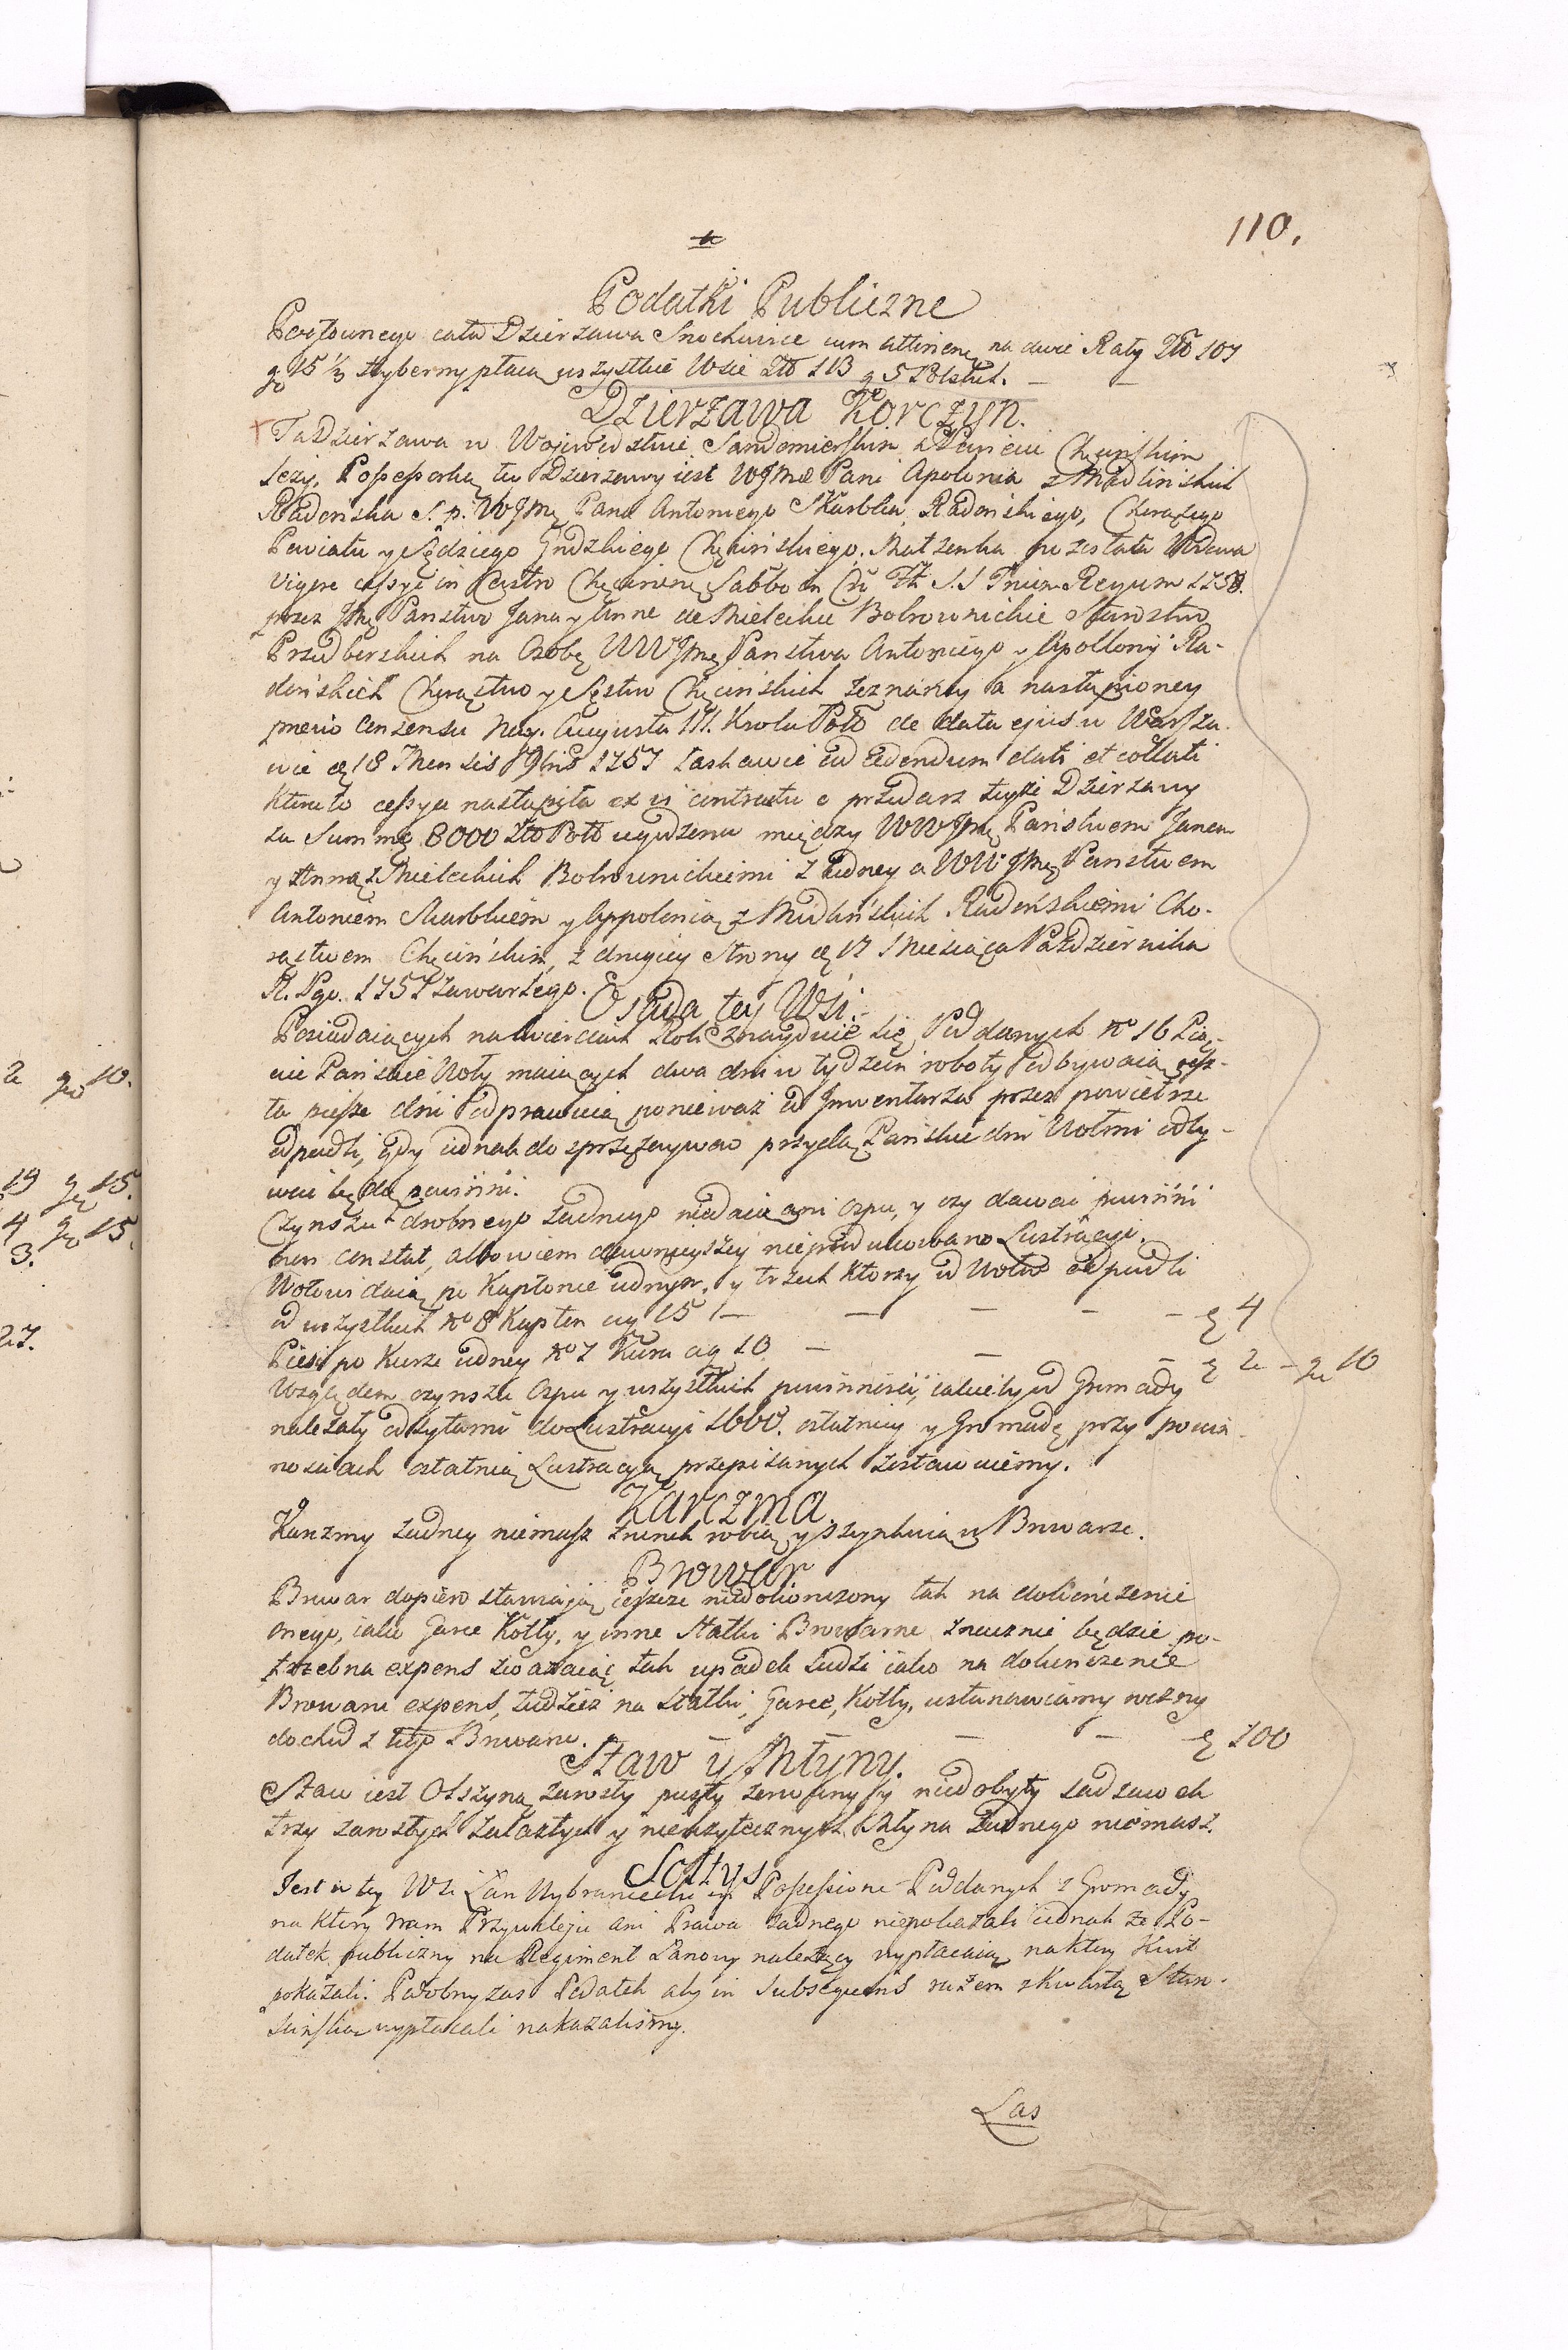 110.
Podatki Publiczne
Pogłownego cała Dzierzawa Snochowice cum attinen. na dwie Raty Zło 107
gr 15 1/3 Hyberny płacą wszystkie Wsie Zło 113 g 5 Polskich.
Dzierzawa Korczyn.
Ta Dzierzawa w Woiewodztwie Sandomierskim a Powiecie Chęcinskim
lezy, Possessorką tey Dzierzawy iest WJMć Pani Apolonia z Midlinskich
Radońska S. p. WJMę Pana Antoniego Skarbka Radońskiego, Chorązego
Powiatu y Sędziego Grodzkiego Chęcińskiego Małzonka pozostała Wdowa
Vigore cessyi in Castro Chęcinen. Sabbo in Cro Ft. S.S Trium Regum 1758.
przez JMę Panstwo Jana y Anne de Mieleckie Bobrownickie Starostw
Przedborskich na Osobę WWJMę Panstwa Antoniego y Apollony Ra-
dońskich Chorąstwo y Sęstwo Chęcińskich zeznaney a nastąpioney
pmeio Consensu Nay. Augusta III. Krola Pollo de data ejus w Warsza-
wie d 18 Mensis 9bris 1757 łaskawie ad cedendum dati et collati
Ktora to cessya nastąpiła ex vi contractu o przedarz teyze Dzierzawy
za Summę 8000 Zło Pollo ugodzona między WWJMę Państwem Janem
y Anną z Mieleckich Bobrownickiemi z iedney a WWJMę Państwem
Antoniem Skarbkiem y Appolonią z Midlińskich Radońskiemi Cho-
rąstwem Chęcińskim, z drugiey Strony d 17 Miesiąca Października
R. Pgo. 1757 zawartego.
Osada tey Wsi.
Posiadaiących na Cwierciach Roli znayduie się Poddanych No 16 Pią-
cie Pańskie Woły maiących dwa dni w tydzien roboty odbywaią resz-
ta piesze dni odprawuią poniewaz od Inwentarza przez powietrze
odpadli, gdy iednak do sprzęzaywow przydą Pańskie dni Wołmi odby-
wac będą powinni.
Czynszu drobnego zadnego niedaią ani ospu, y czy dawac powinni
non constat, albowiem dawnieyszey nieprodukowano Lustracyi.
Wołowi daią po Kapłonie iednym y trzech Ktorzy od Wołow odpadli
od wszystkich No 8 Kapłon ag 15 — — — — — ę 4
Piesi po Kurze iedney No 7 Kura ag 10 — — — ę 2 - gr 10
Względem czynszu Ospu y wszystkich powinnosci, iakieby od Gromady
nalezały odsyłamy do Lustracyi 1660. ostatniey y Gromadę przy powin-
nosciach ostatnią Lustracyą przepisanych zostawuiemy.
Karczma.
Karczmy zadney niemasz trunek robią y szynkuią w Browarze.
Browar
Browar dopiero stawiaią ieszcze niedokonczony tak na dokończenie
onego, iako Garce Kotły, y inne Statki Browarne znacznie będzie po-
trzebna expens zwazaiąc tak upadek ludzi iako na dokonczenie
Browaru expens, tudziez na Statki, Garce, Kotły, ustanawiamy roczny
dochod z tego Browaru. — — ę 100
Staw y Młyny.
Staw iest Olszyną zarosły pusty zerwany y niedobyty sadzawek
trzy zarosłych zalazłych y nieuzytecznych. Młyna zadnego niemasz.
Sołtys
Jest w tey Wsi Łan Wybraniecki in Possessione Poddanych z Gromady
na Ktory nam Przywileju ani Prawa zadnego niepokazali iednak ze Po-
datek publiczny na Regiment Łanowy nalezący wypłacaią na Ktory Kwit
pokazali. Podobny zas Podatek aby in Subsequens razem z Kwartą Staro-
scinską wypłacali nakazalismy.
Las
2 gr 10.
19 gr 15.
4 gr 15.
3.
27.